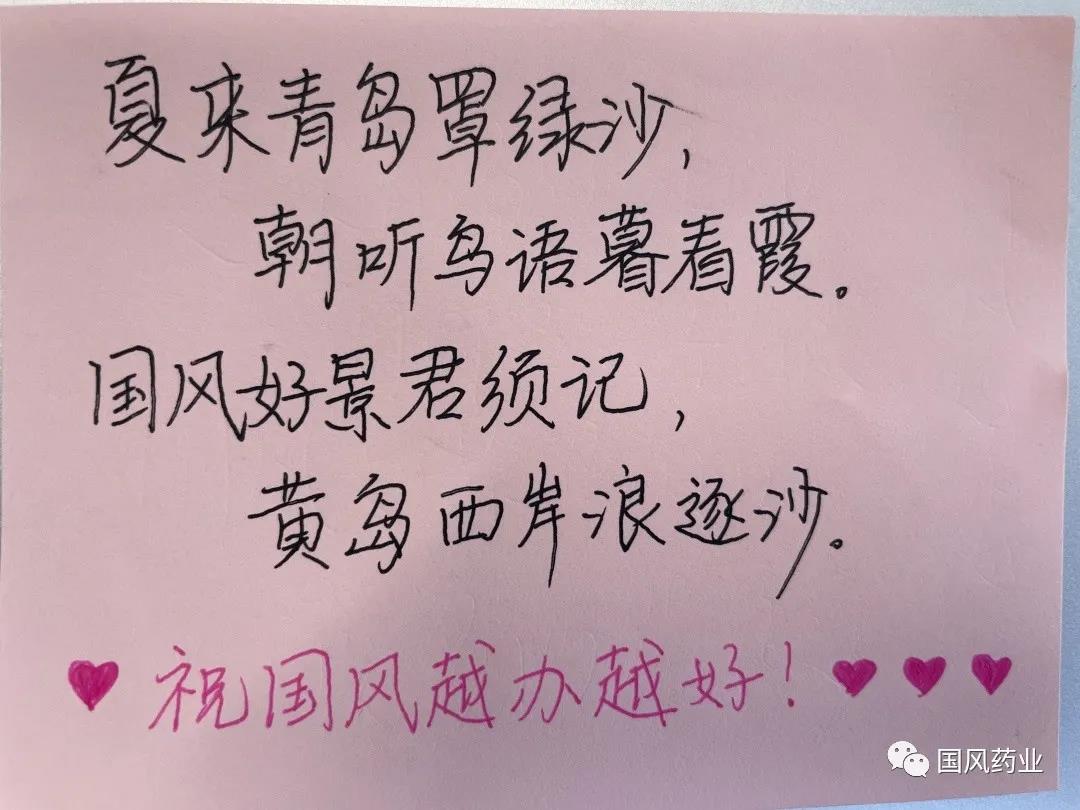 夏来青岛罩绿沙,
朝听鸟语暮看霞。
国风好景君须记,
黄岛西岸浪逐沙。
祝国风越办越好!
国风药业